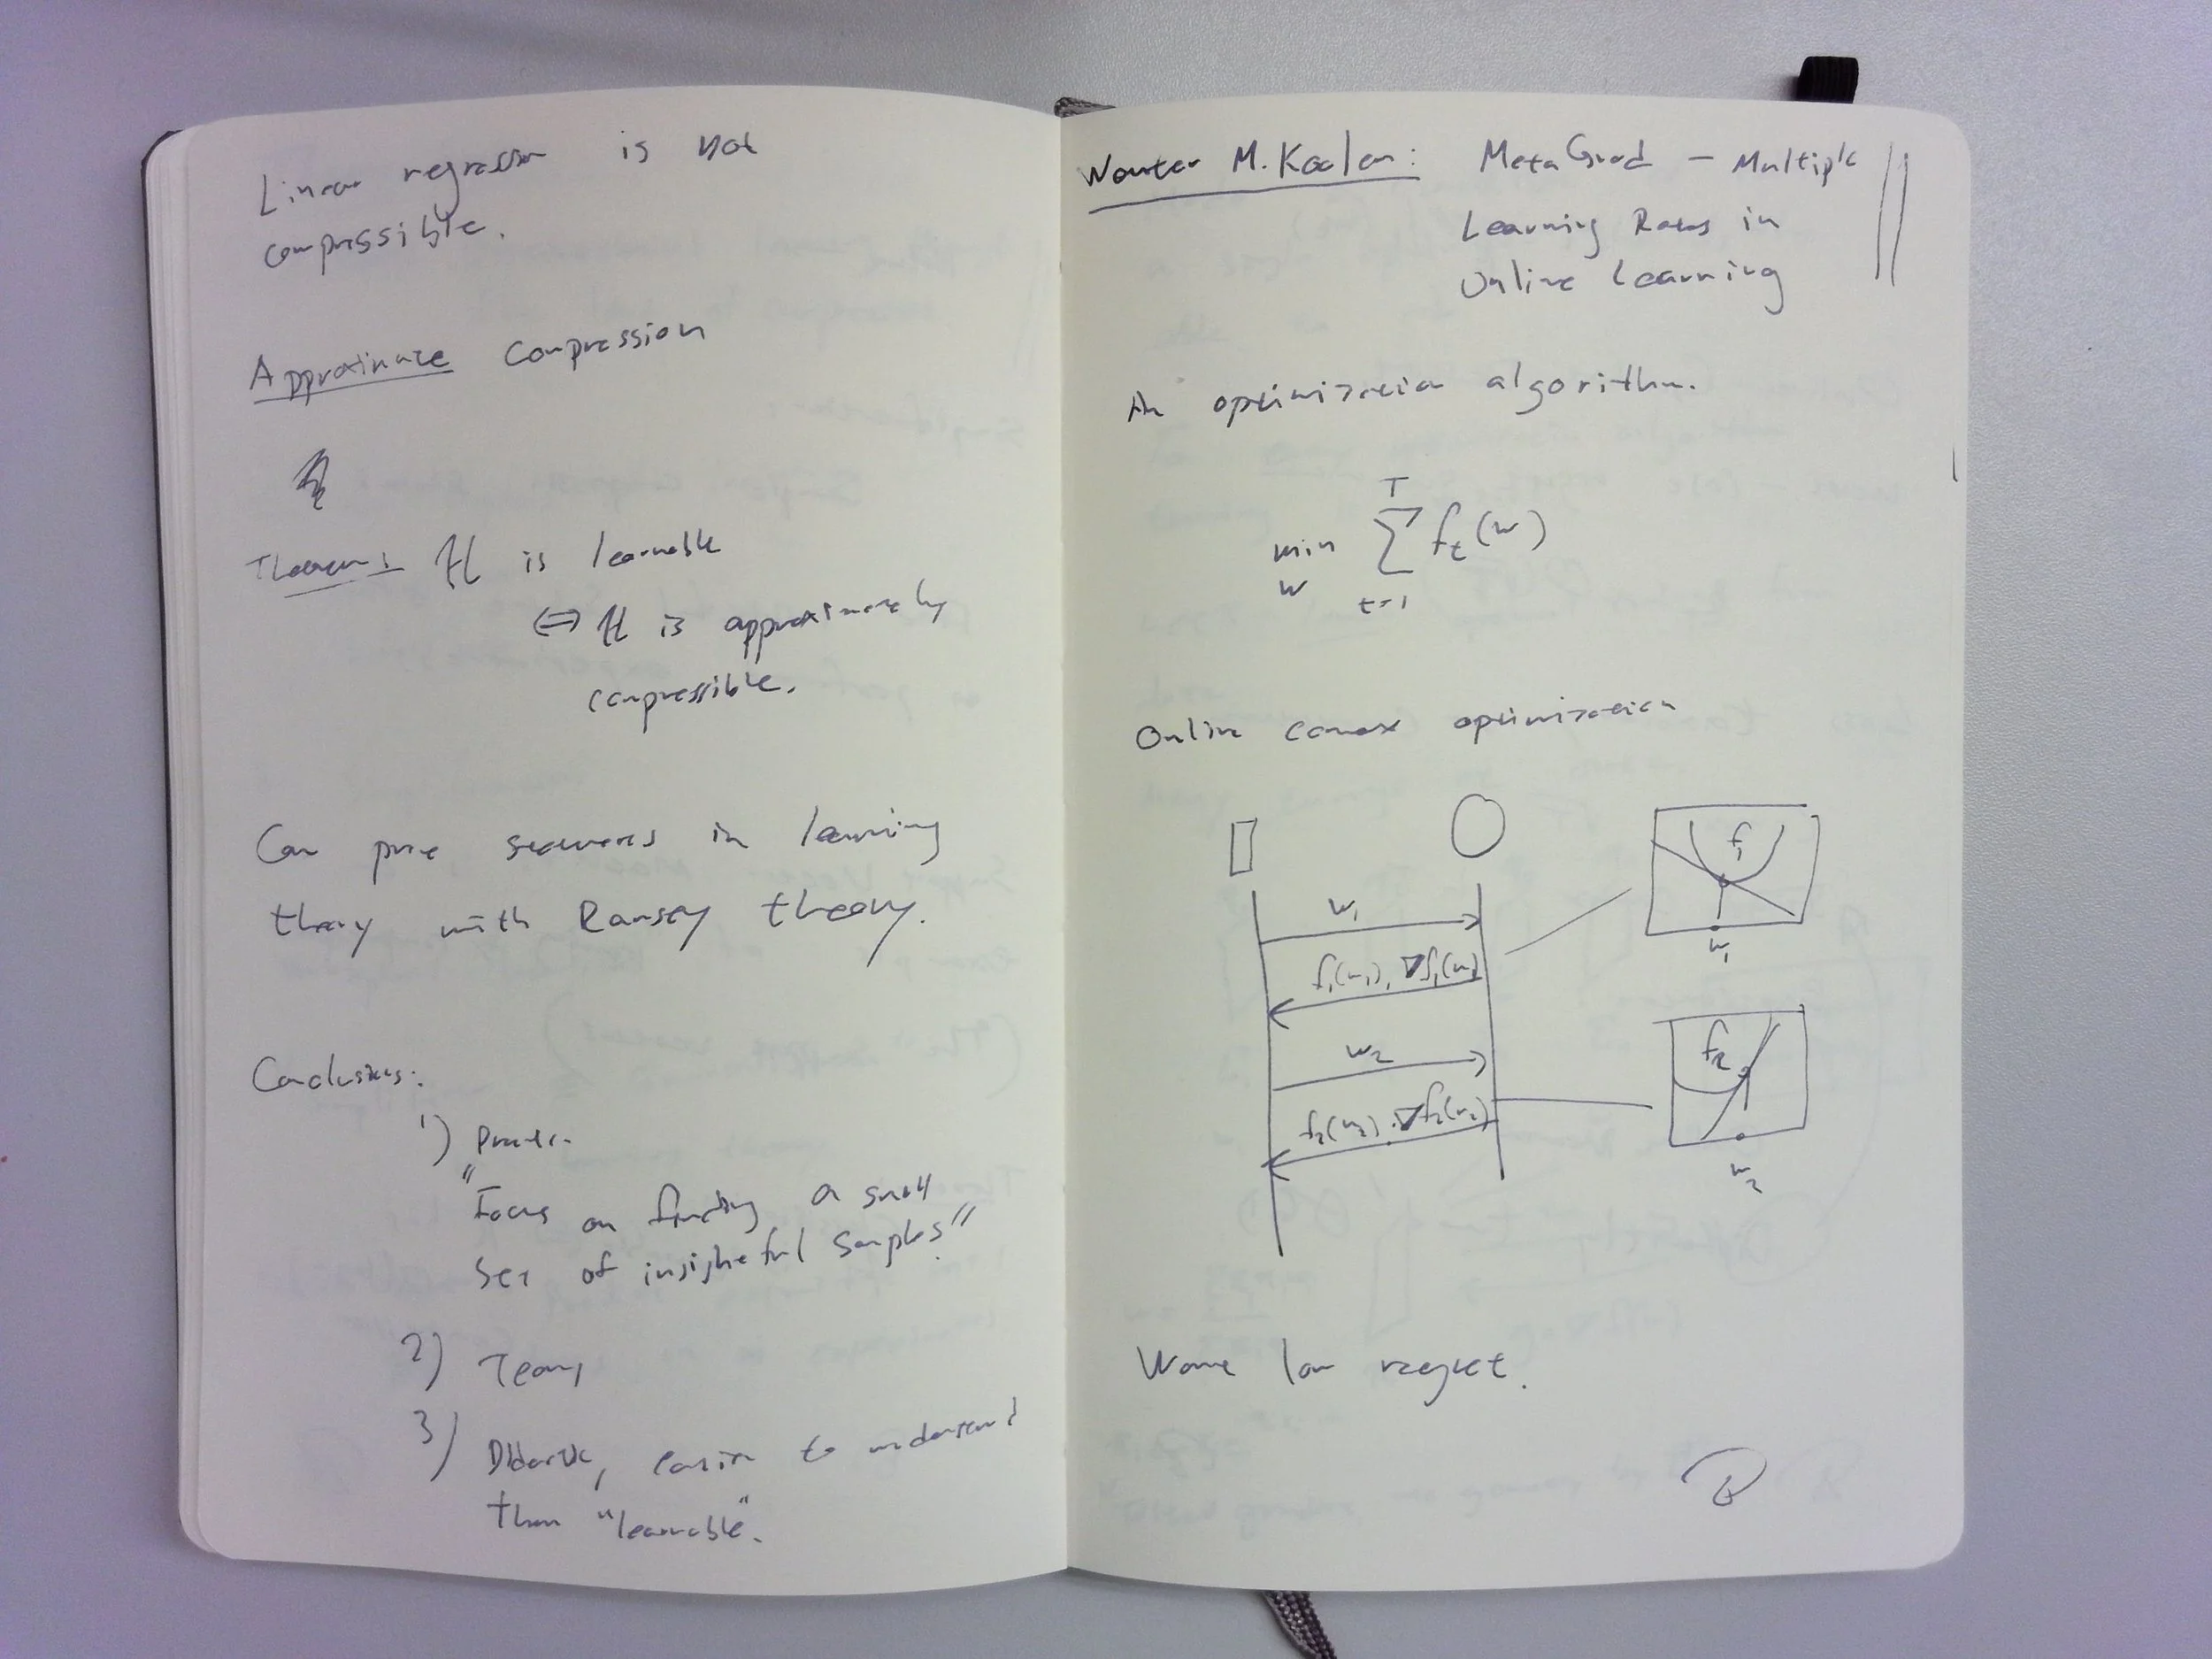 Linear regression is not
compressible.
Approximate Compression
Theorem: H is learnable
⇔ H is approximately
compressible.
Can prove in learning
theory with Ramsey theory.
Conclusions:
1)
"Focus on finding a small
set of insightful samples"
2)
3) Didactic, easier to understand
than "learnable".
Wouter M. Koolen: MetaGrad – Multiple
Learning Rates in
Online Learning
An optimization algorithm.
min_w ∑_{t=1}^{T} f_t(w)
Online convex optimization
f₁
w₁
w₁
f₁(w₁), ∇f₁(w₁)
f₂
w₂
f₂(w₂), ∇f₂(w₂)
w₂
Want low regret.